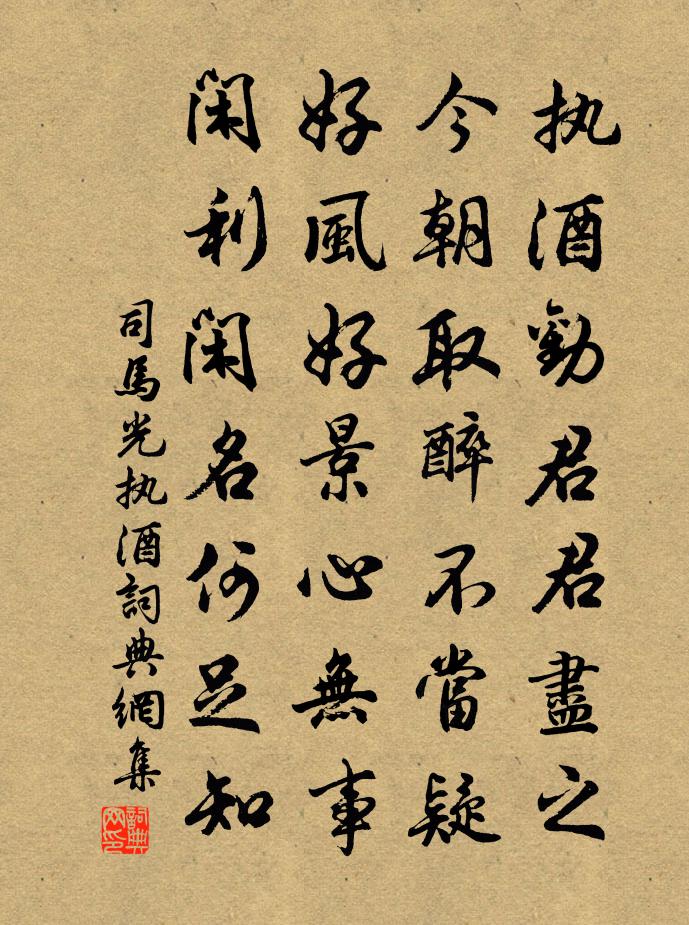 执酒勸君君盡之
今朝取醉不當疑
好風好景心無事
閑利閑名何足知
司馬光执酒詞典網集
詞典网印